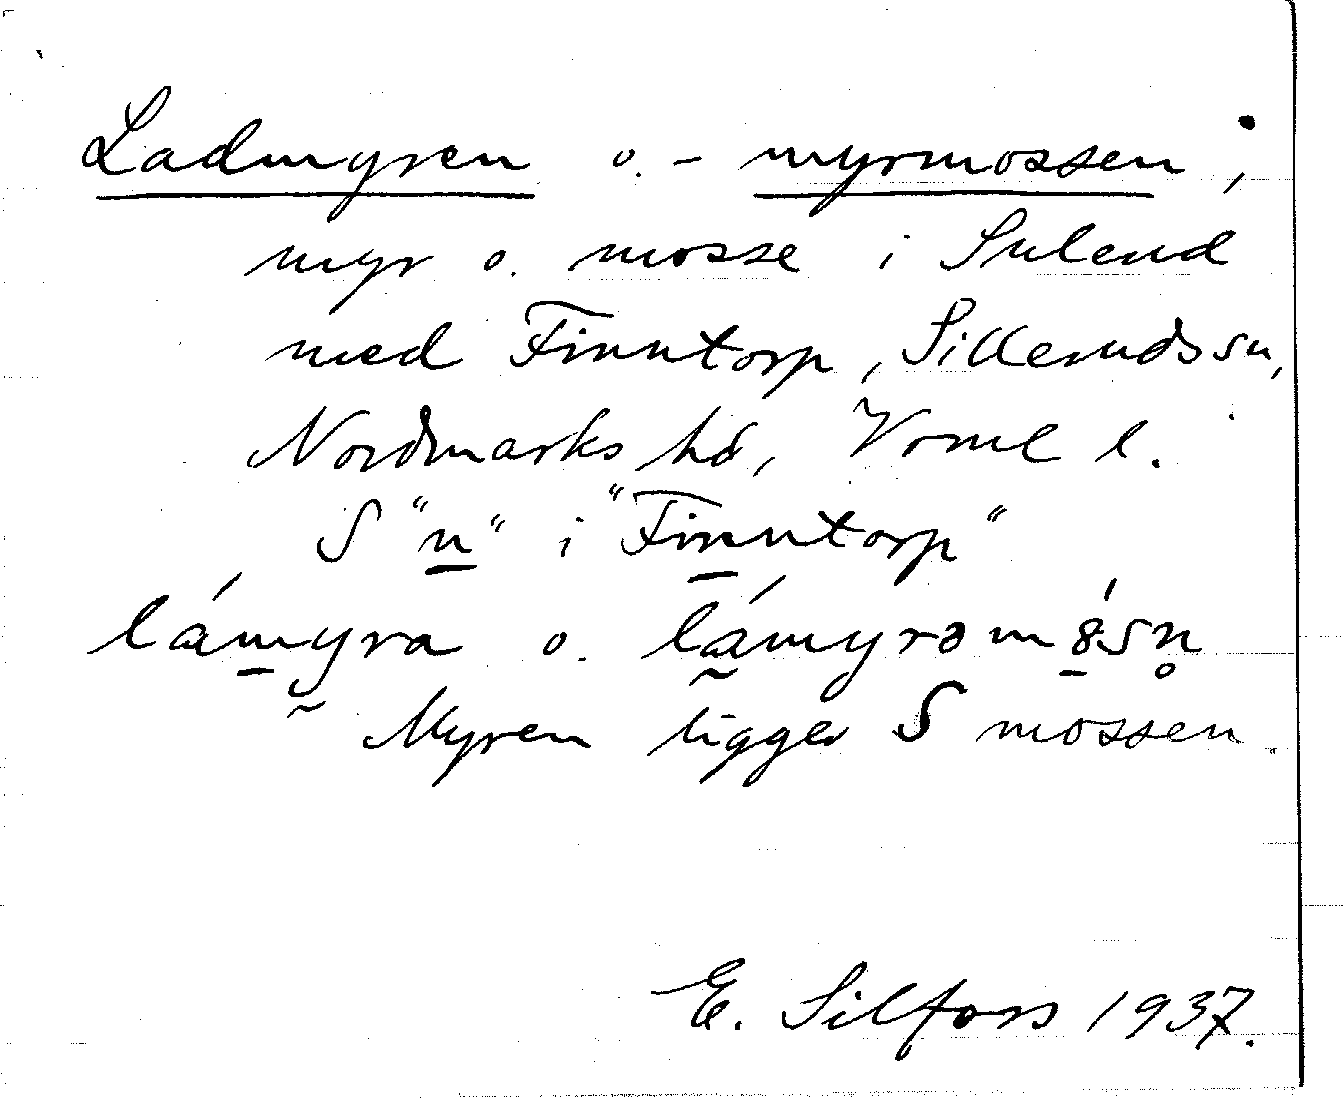 Ladmyren o. - myrmossen,
myr o. mosse i Sulerud
med Finntorp, Sillerudssn,
Nordmarks hd, Vrml l.
S "n" i "Finntorp"
lámyra o. lámyrəmȣ́sn̥
Myren ligger S mossen.
E. Silfors 1937.